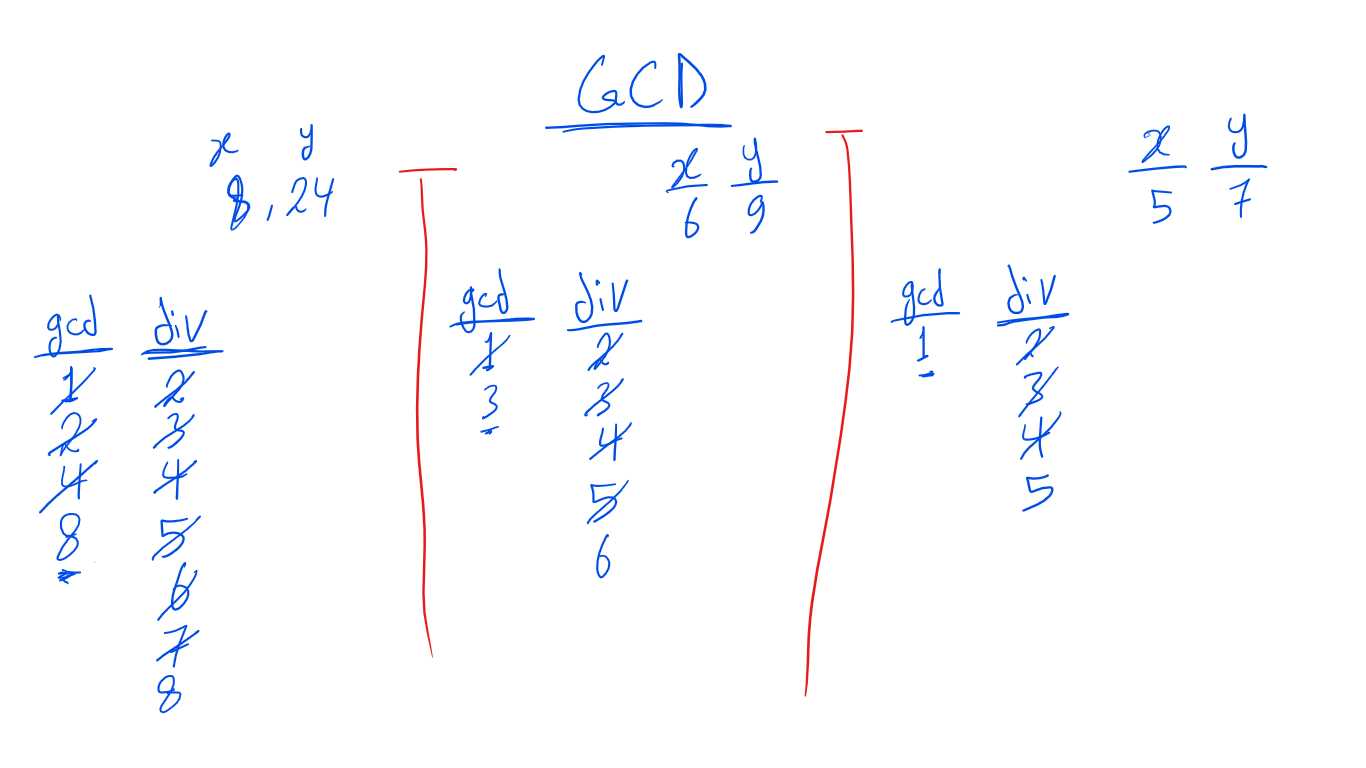 GCD
x y
8, 24
gcd div
1 2
2 3
4 4
8 5
6
7
8
x y
6 9
gcd div
1 2
3 3
4
5
6
x y
5 7
gcd div
1 2
3
4
5